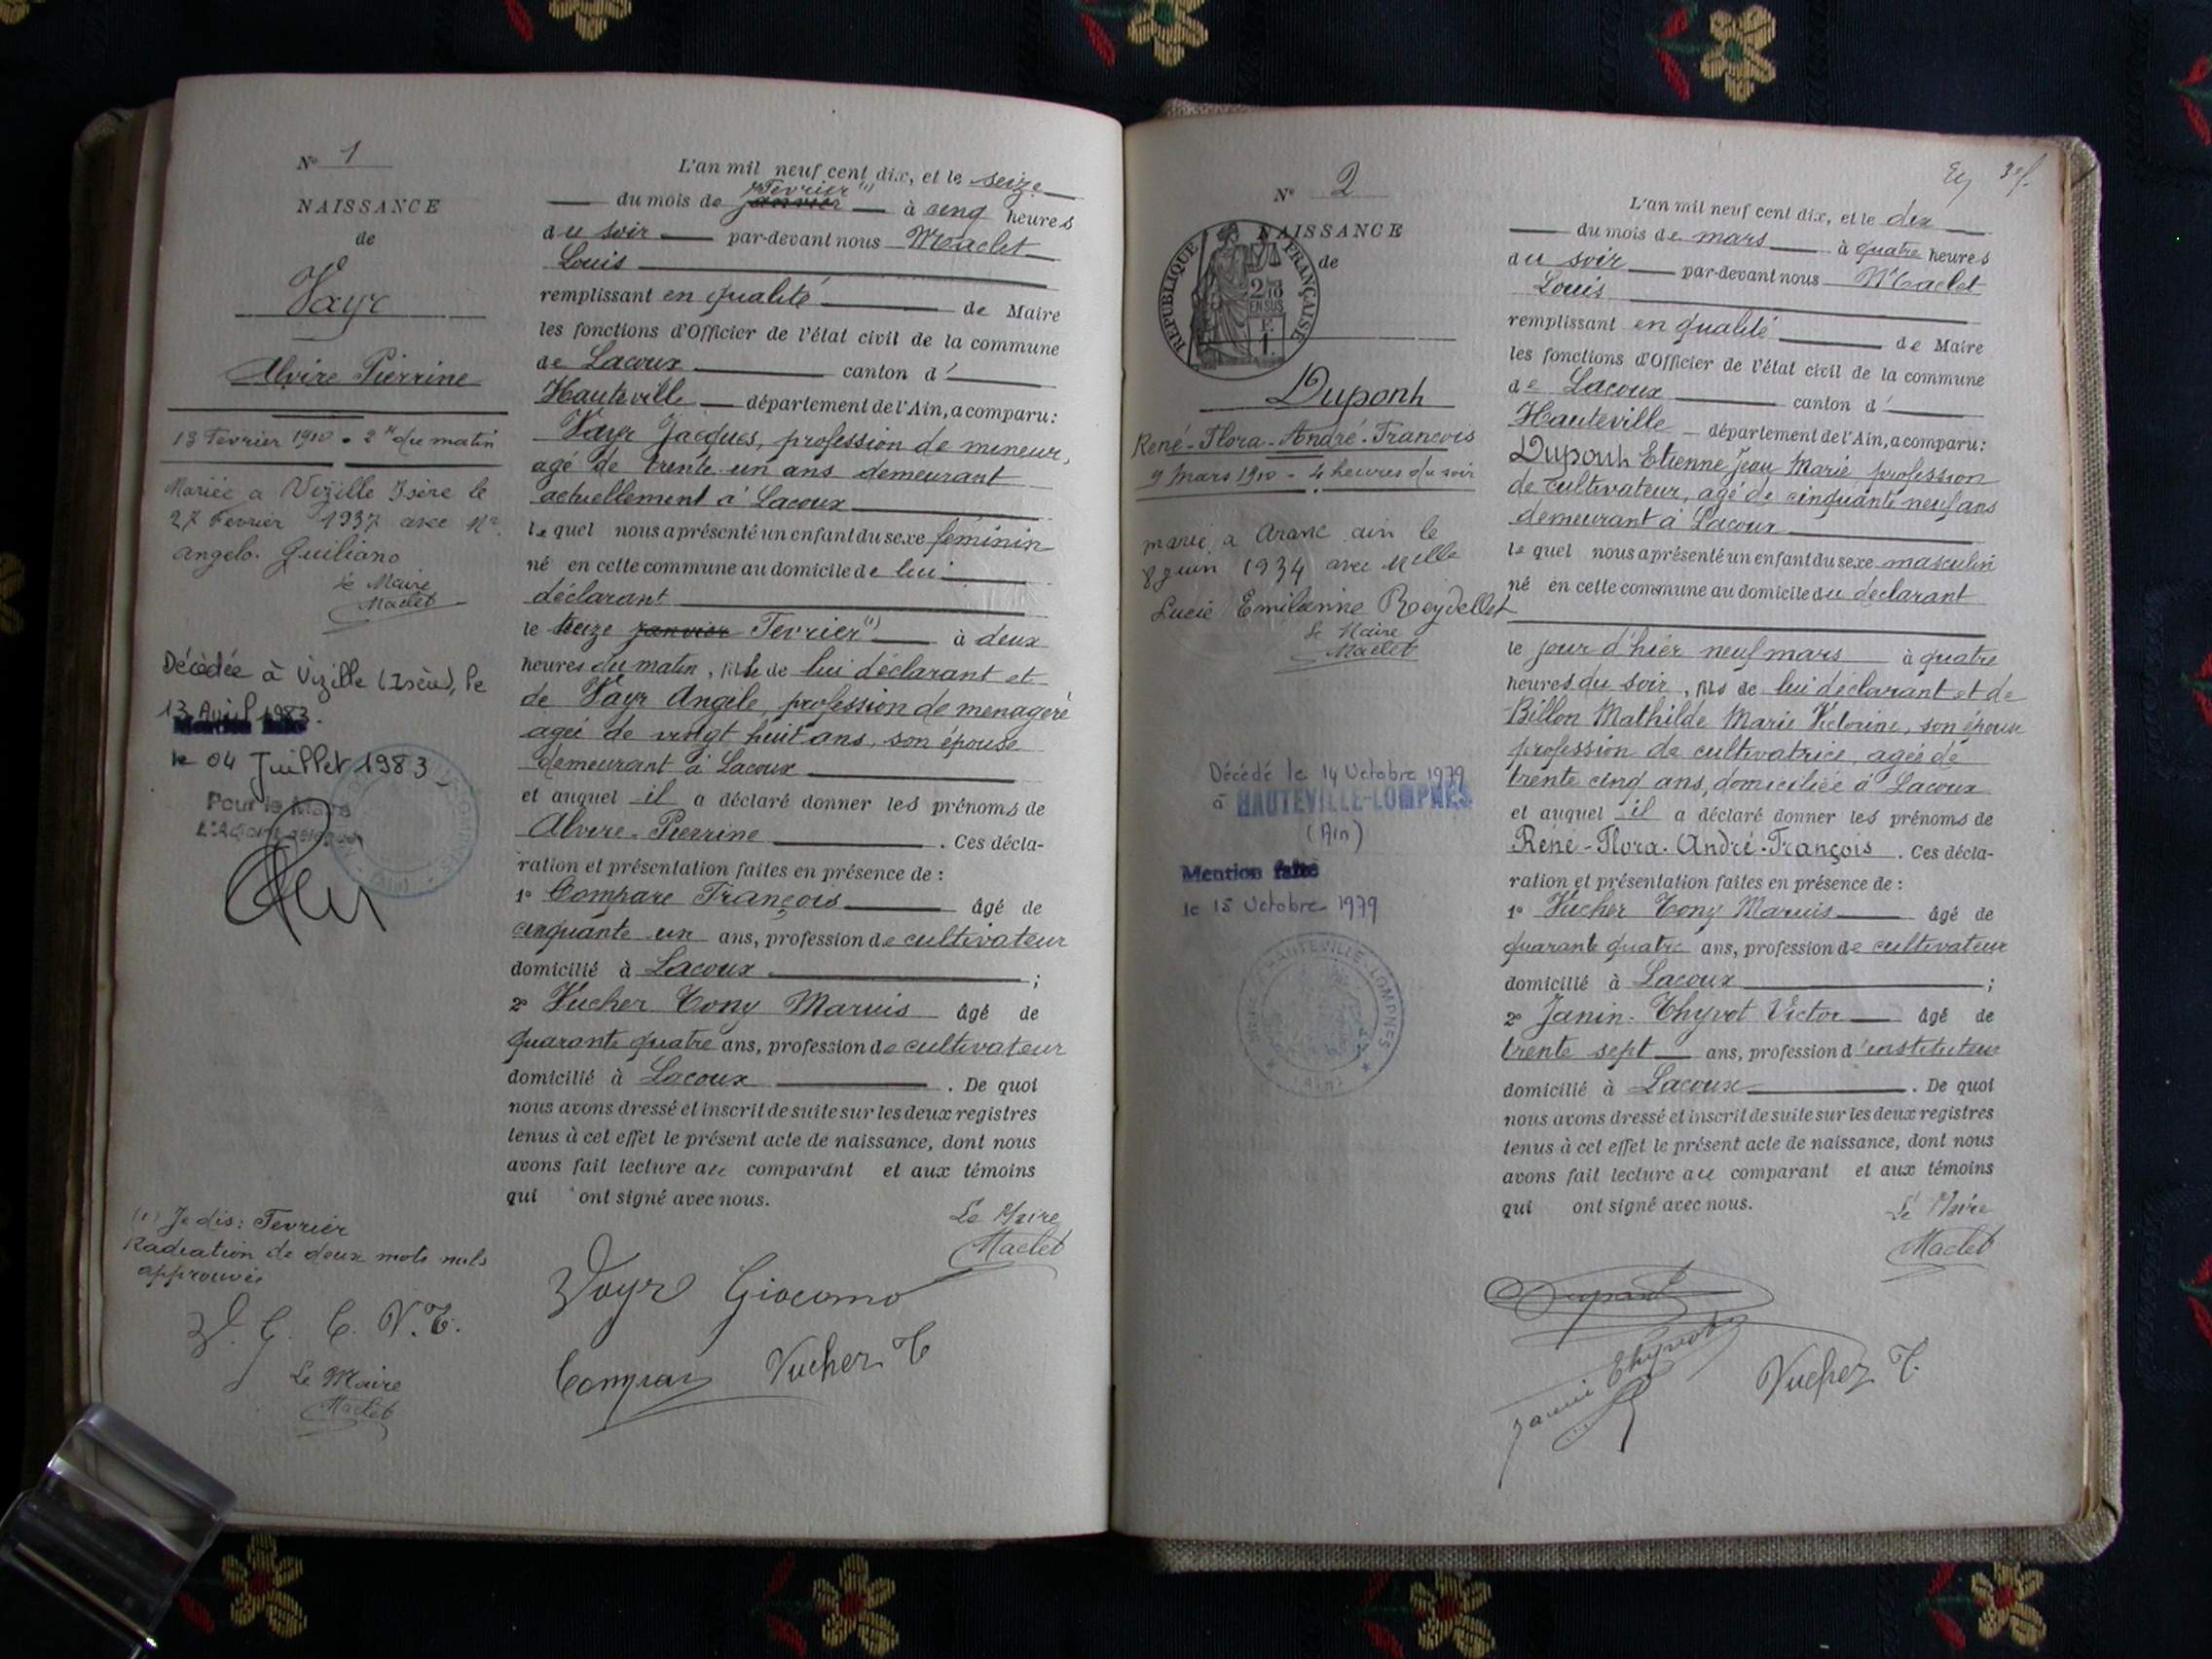 N° 1
NAISSANCE
de
Vayr
Alvire Pierrine
13 Fevrier 1910 - 2 h du matin
Mariée a Vizille Isère le
27 Fevrier 1937 avec Mr
angelo. Guiliano
le Maire
Maclet
Décédée à Vizille (Isère), le
13 Avril 1983.
le 04 Juillet 1983
Pour le Maire
(1) Je dis: Fevrier
Radiation de deux mots nuls
approuvée
V. G. C. V. T.
Le Maire
Maclet
L'an mil neuf cent dix, et le seize
Fevrier (1)
du mois de janvier à cinq heures
du soir par-devant nous Maclet
Louis
remplissant en qualité de Maire
les fonctions d'Officier de l'état civil de la commune
de Lacoux canton d'
Hauteville département de l'Ain, a comparu:
Vayr Jacques, profession de mineur,
agé de trente un ans demeurant
actuellement à Lacoux
lequel nous a présenté un enfant du sexe féminin
né en cette commune au domicile de lui
déclarant
le treize janvier Fevrier (1) à deux
heures du matin, fille de lui déclarant et
de Vayr Angele, profession de menagère
agée de vingt huit ans, son épouse
demeurant à Lacoux
et auquel il a déclaré donner les prénoms de
Alvire-Pierrine. Ces décla-
ration et présentation faites en présence de :
1° Compare François âgé de
cinquante un ans, profession de cultivateur
domicilié à Lacoux ;
2° Vucher Tony Maruis âgé de
quarante quatre ans, profession de cultivateur
domicilié à Lacoux. De quoi
nous avons dressé et inscrit de suite sur les deux registres
tenus à cet effet le présent acte de naissance, dont nous
avons fait lecture au comparant et aux témoins
qui ont signé avec nous.
Le Maire
Maclet
Vayr Giacomo
Vucher T
N° 2
NAISSANCE
de
REPUBLIQUE FRANÇAISE
2/10
EN SUS
Dupont
René-Flora-André-François
9 mars 1910 - 4 heures du soir
marié à Aranc ain le
8 juin 1934 avec Melle
Lucie Emilienne Reydellet
Le Maire
Maclet
Décédé le 14 Octobre 1979
à HAUTEVILLE-LOMPNES
(Ain)
Mention faite
le 15 Octobre 1979
HAUTEVILLE-LOMPNES
(Ain)
L'an mil neuf cent dix, et le dix
du mois de mars à quatre heures
du soir par-devant nous Maclet
Louis
remplissant en qualité de Maire
les fonctions d'Officier de l'état civil de la commune
de Lacoux canton d'
Hauteville département de l'Ain, a comparu:
Dupont Etienne Jean Marie profession
de cultivateur, agé de cinquante neuf ans
demeurant à Lacoux
lequel nous a présenté un enfant du sexe masculin
né en cette commune au domicile du déclarant
le jour d'hier neuf mars à quatre
heures du soir, fils de lui déclarant et de
Billon Mathilde Marie Victorine, son épouse
profession de cultivatrice, agée de
trente cinq ans, domiciliée à Lacoux
et auquel il a déclaré donner les prénoms de
René-Flora. André-François. Ces décla-
ration et présentation faites en présence de :
1° Vucher Tony Maruis âgé de
quarante quatre ans, profession de cultivateur
domicilié à Lacoux ;
2° Janin-Thyvot Victor âgé de
trente sept ans, profession d'instituteur
domicilié à Lacoux. De quoi
nous avons dressé et inscrit de suite sur les deux registres
tenus à cet effet le présent acte de naissance, dont nous
avons fait lecture au comparant et aux témoins
qui ont signé avec nous.
Le Maire
Maclet
Dupont
Janin Thyvot
Vucher T.